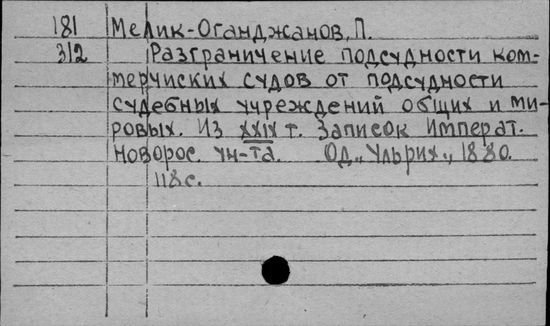 181 Мелик-Оганджанов, П.
312 Разграничение подсудности ком-
мерчиских судов от подсудности
судебных учреждений общих и ми-
ровых. Из XXIX т. Записок Императ.
Новорос. ун-та. Од., „Ульрих„, 1880.
118с.